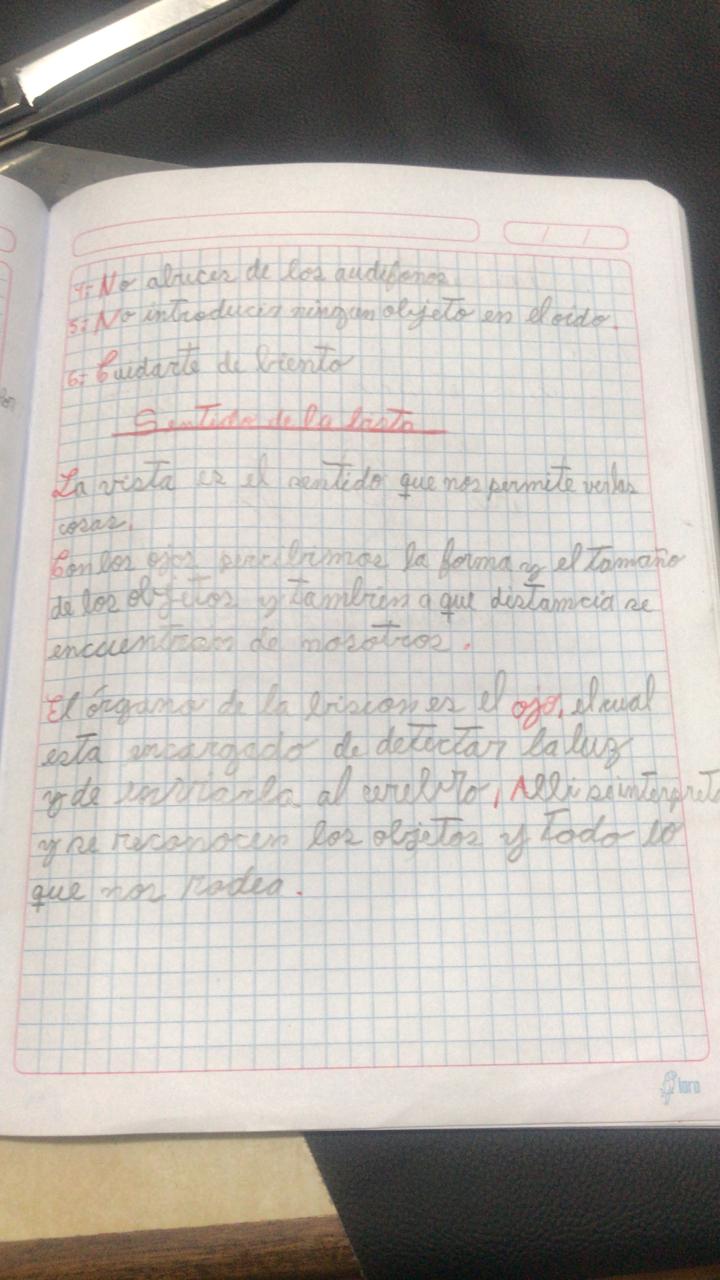 4: No abuces de los audifonos.
5: No introducir ningun objeto en el oido.
6: Cuidarte de viento
Sentido de la
La vista es el sentido que nos permite ver las
cosas.
Con los ojos percibimos la forma y el Tamaño
de los objetos y tambien a que distancia se
encuentran de nosotros.
El órgano de la vision es el ojo, el cual
esta encargado de detectar la luz
y de enviarla al cerebro, Alli se interpreta
y se reconocen los objetos y Todo lo
que nos rodea.
loro